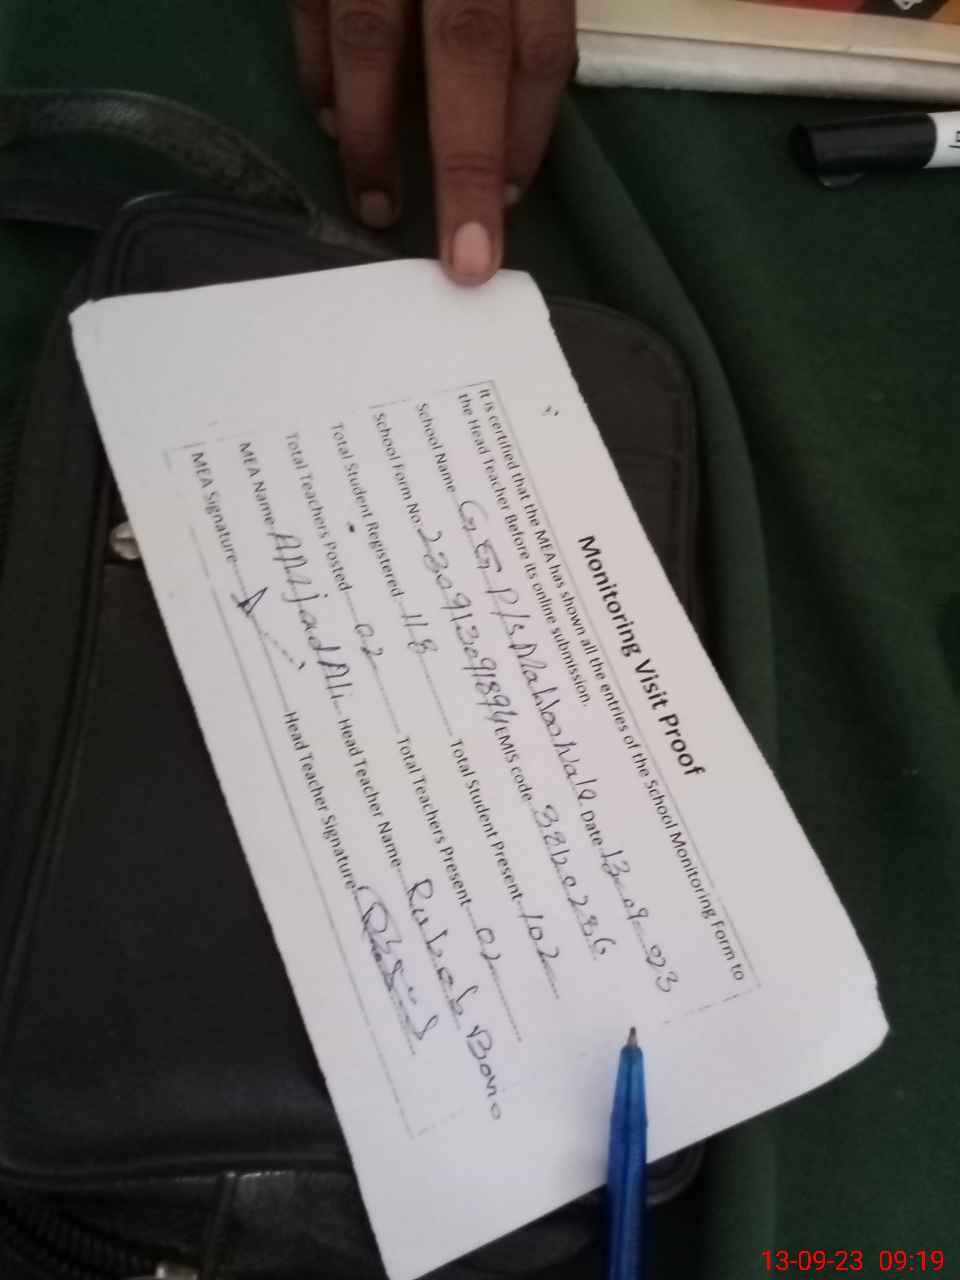 Monitoring Visit Proof
It is certified that the MEA has shown all the entries of the School Monitoring Form to
the Head Teacher Before its online submission.
School Name G.G.P/S Date 13-09-023
School Form No 230913091894 EMIS code 33120286
Total Student Registered 118 Total Student Present 102
Total Teachers Posted 02 Total Teachers Present 02
MEA Name Amjad Ali Head Teacher Name
MEA Signature Head Teacher Signature
13-09-23 09:19